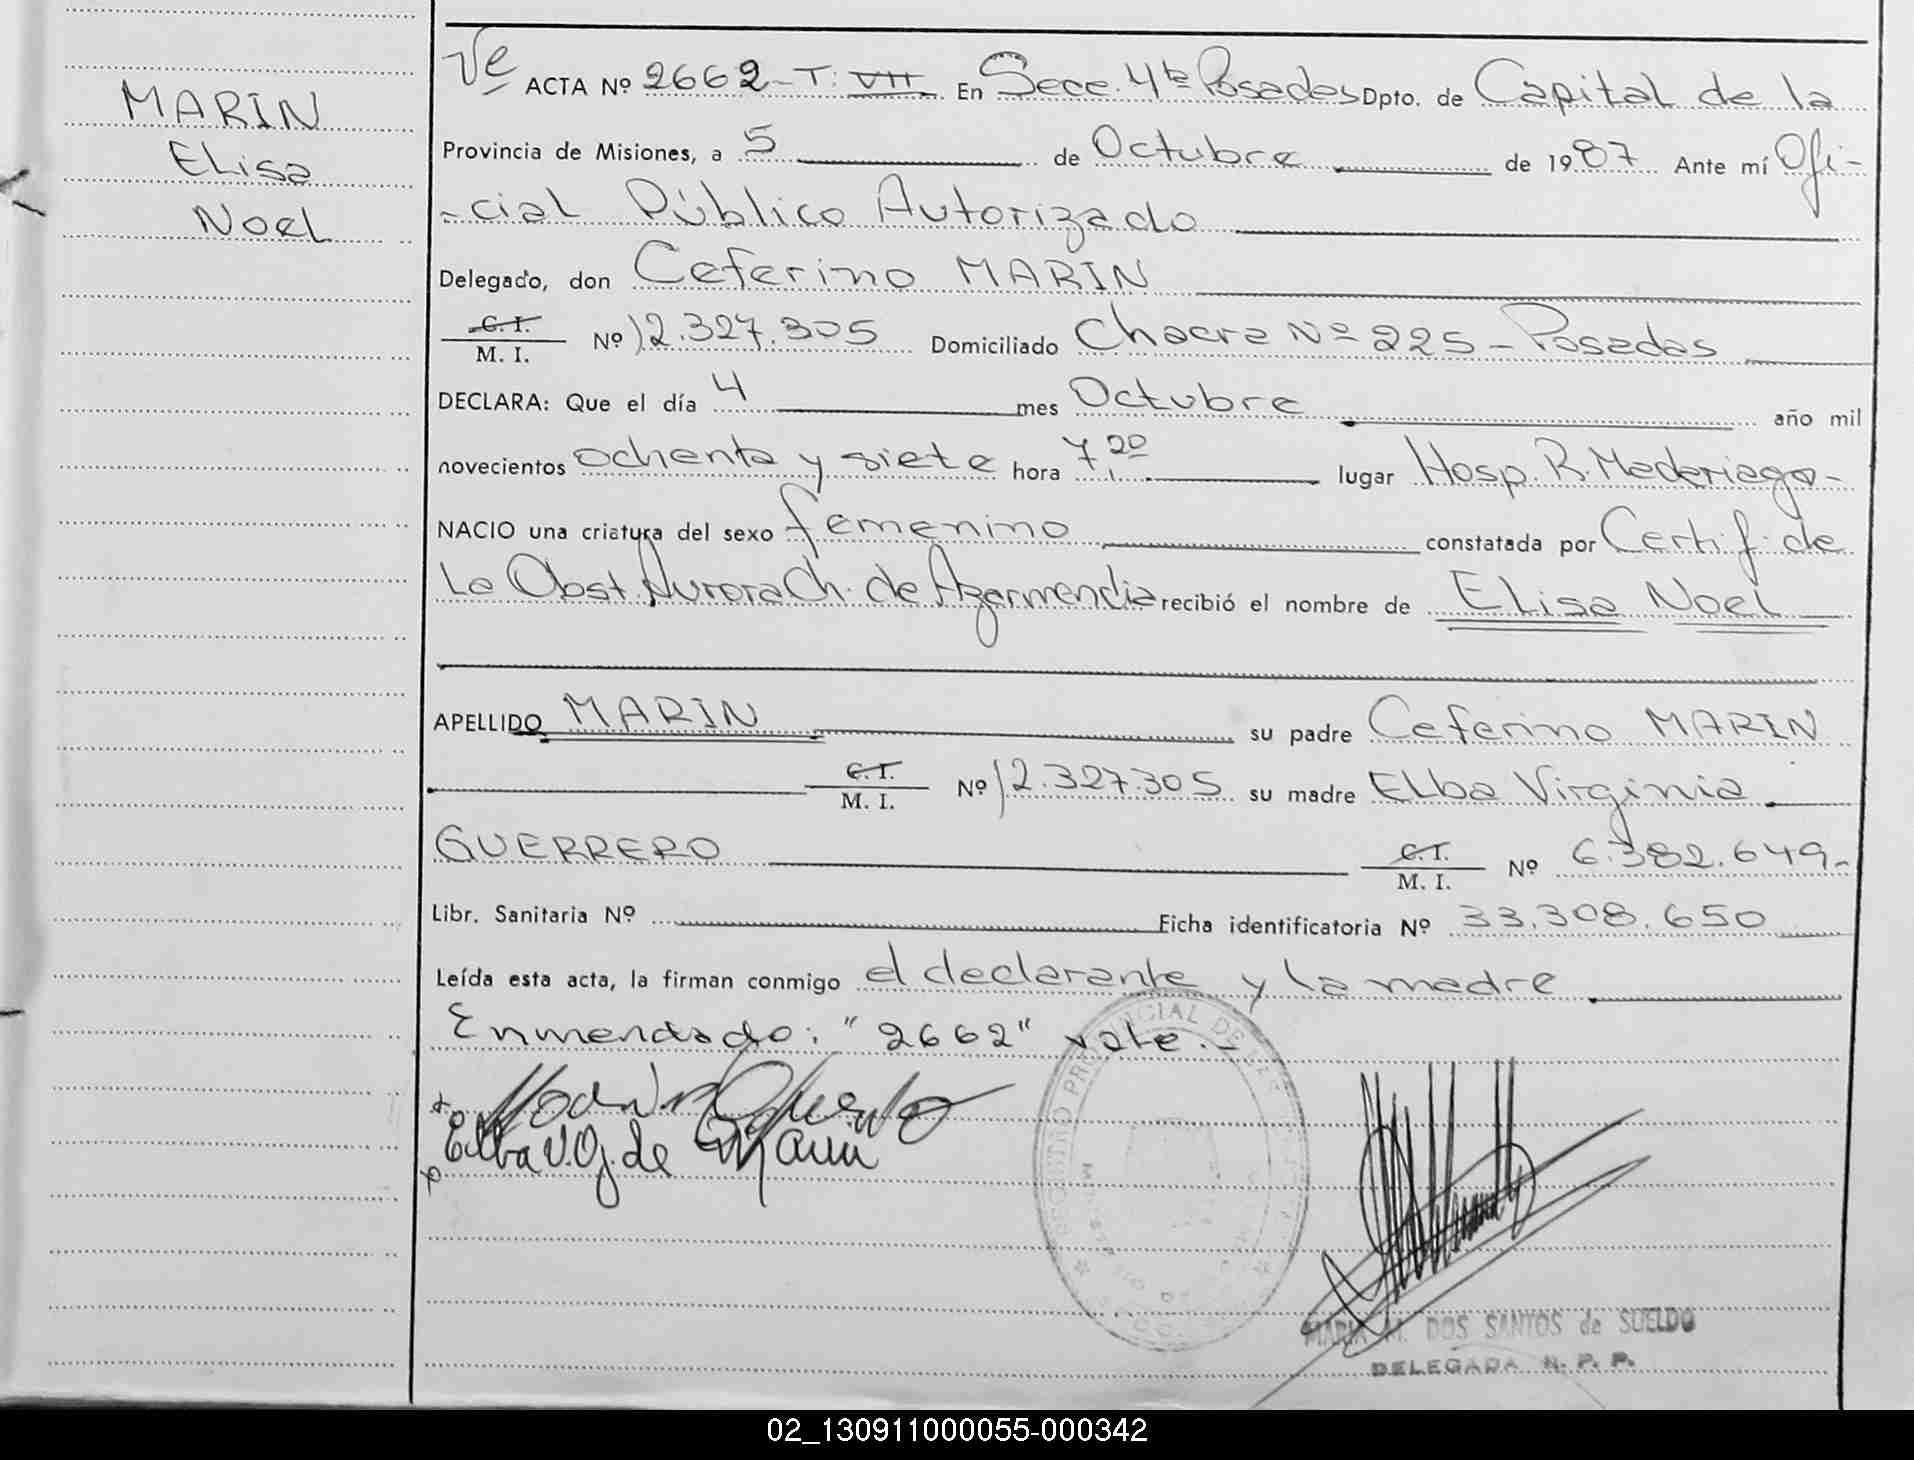 MARIN
Elisa
Noel
Ve ACTA Nº 2662 - T: VII. En Secc. 4ta Posadas Dpto. de Capital de la
Provincia de Misiones, a 5 de Octubre de 1987 Ante mí Ofi-
-cial Público Autorizado
Delegado, don Ceferino MARIN
C. I.
M. I. Nº 12.327.305 Domiciliado Chacra Nº 225 - Posadas
DECLARA: Que el día 4 mes Octubre año mil
novecientos ochenta y siete hora 7,20 lugar Hosp. R. Madariaga-
NACIO una criatura del sexo femenino constatada por Certif. de
La Obst. Aurora Ch. de Azarmendia recibió el nombre de Elisa Noel
APELLIDO MARIN su padre Ceferino MARIN
C. I.
M. I. Nº 12.327.305 su madre Elba Virginia
GUERRERO C. I.
M. I. Nº 6.382.649.-
Libr. Sanitaria Nº Ficha identificatoria Nº 33.308.650
Leída esta acta, la firman conmigo el declarante y la madre
Enmendado: "2662" vale.-
Elba V. G. de Marin
REGISTRO PROVINCIAL DE LAS
MARIA M. DOS SANTOS de SUELDO
DELEGADA R. P. P.
02_130911000055-000342